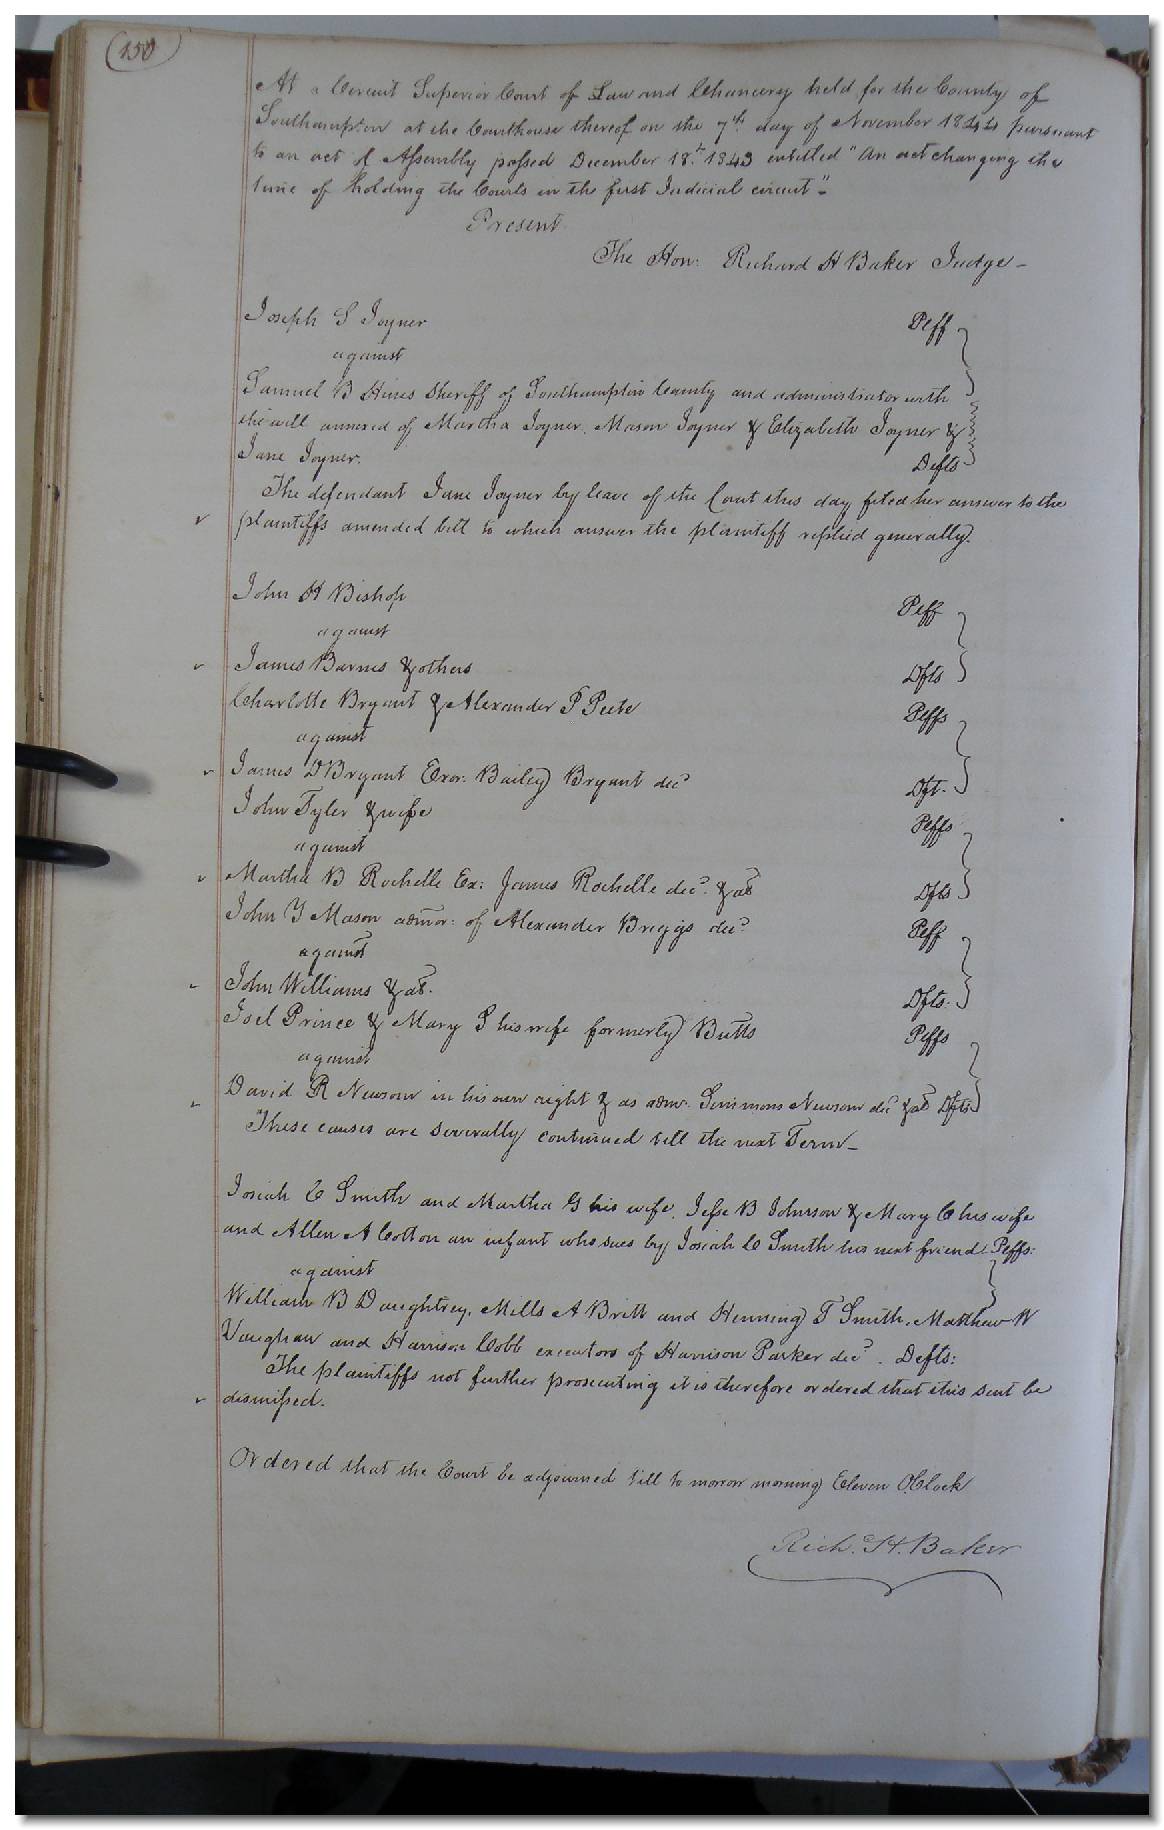 150
At a Circuit Superior Court of Law and Chancery held for the County of
Southampton at the Courthouse thereof on the 7th day of November 1844 pursuant
to an act of Assembly passed December 18th 1843 entitled "An act changing the
time of holding the Courts in the first Judicial circuit"-
Present
The Hon: Richard H Baker Judge-
Joseph S Joyner Plff
against
Samuel B Hines Sheriff of Southampton County and administrator with
the will annexed of Martha Joyner, Mason Joyner & Elizabeth Joyner &
Jane Joyner. Defts
The defendant Jane Joyner by leave of the Court this day filed her answer to the
plaintiffs amended bill to which answer the plaintiff replied generally.
John H Bishop Plff
against
James Barnes & others Dfts
Charlotte Bryant & Alexander P Peete Plffs
against
James D Bryant Exor: Bailey Bryant decd Dft.
John Tyler & wife Plffs
against
Martha B Rochelle Ex: James Rochelle decd. & als Dfts
John Y Mason admor: of Alexander Briggs decd Plff
against
John Williams & als. Dfts.
Joel Prince & Mary S his wife formerly Butts Plffs
against
David R Newsom in his own right & as admr. Simmons Newsom decd & als Dfts
These causes are severally continued till the next Term-
Josiah C Smith and Martha G his wife, Jesse B Johnson & Mary C his wife
and Allen A Cotton an infant who sues by Josiah C Smith his next friend Plffs:
against
William B Daughtrey, Mills A Britt and Henning T Smith, Matthew W
Vaughan and Harrison Cobb executors of Harrison Parker decd. Defts:
The plaintiffs not further prosecuting it is therefore ordered that this suit be
dismissed.
Ordered that the Court be adjourned till to morrow morning Eleven O'Clock
Rich. H. Baker